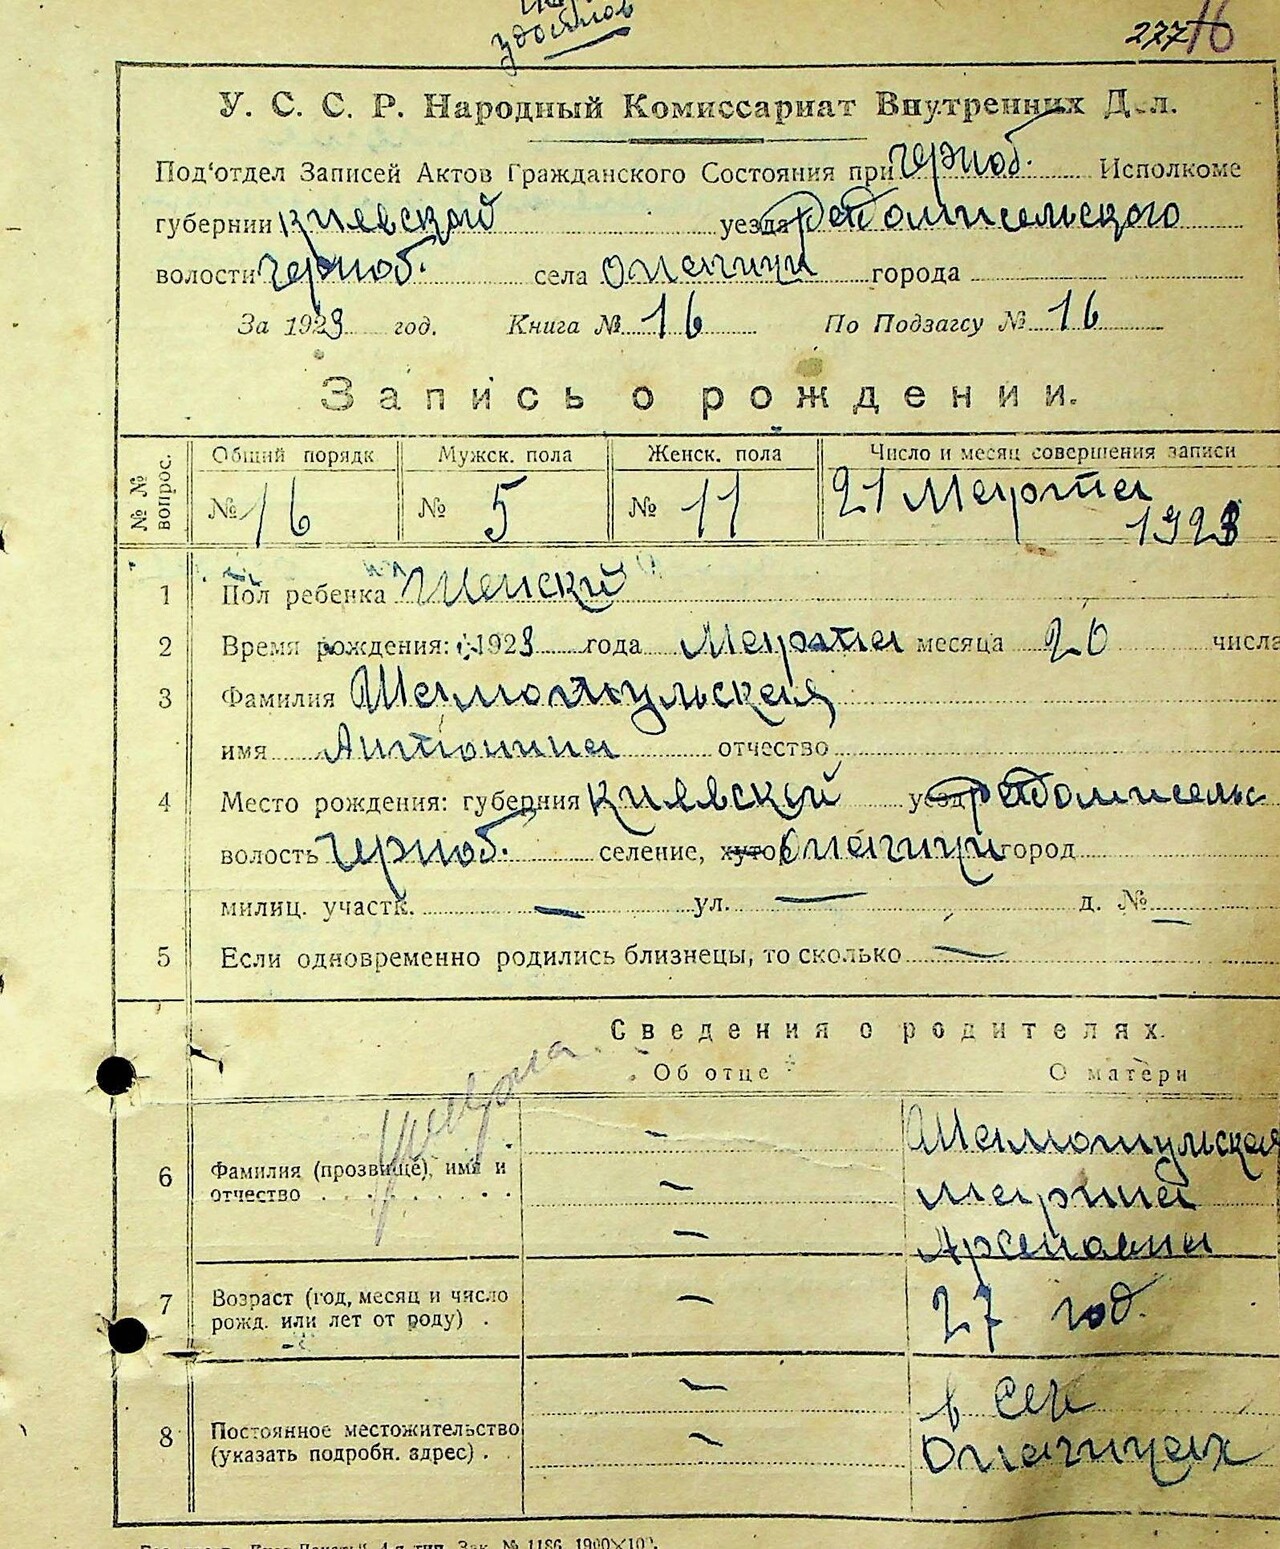 277 16
У. С. С. Р. Народный Комиссариат Внутренних Дел.
Под'отдел Записей Актов Гражданского Состояния при Черноб. Исполкоме
губернии Киевской уезда Радомисельского
волости Черноб. села Опачичи города
За 1923 год. Книга № 16 По Подзагсу № 16
Запись о рождении.
№ № вопрос. Общий порядк Мужск. пола Женск. пола Число и месяц совершения записи
№ 16 № 5 № 11 21 Марта
1923
1 Пол ребенка Женский
2 Время рождения: 1923 года Марта месяца 20 числа
3 Фамилия Шамотульская
имя Антонина отчество
4 Место рождения: губерния Киевской уезд Радомисельс
волость Черноб. селение, хутор Опачичи город
милиц. участк. — ул. — д. № —
5 Если одновременно родились близнецы, то сколько —
Сведения о родителях.
Об отце О матери
6 Фамилия (прозвище), имя и отчество . . . . . . . — Шамотульская
— Мария
— Арсеновна
7 Возраст (год, месяц и число рожд. или лет от роду) . — 27 год.
8 Постоянное местожительство (указать подробн. адрес) . — в сел
— Опачичах
4-я тип. Зак. № 1186